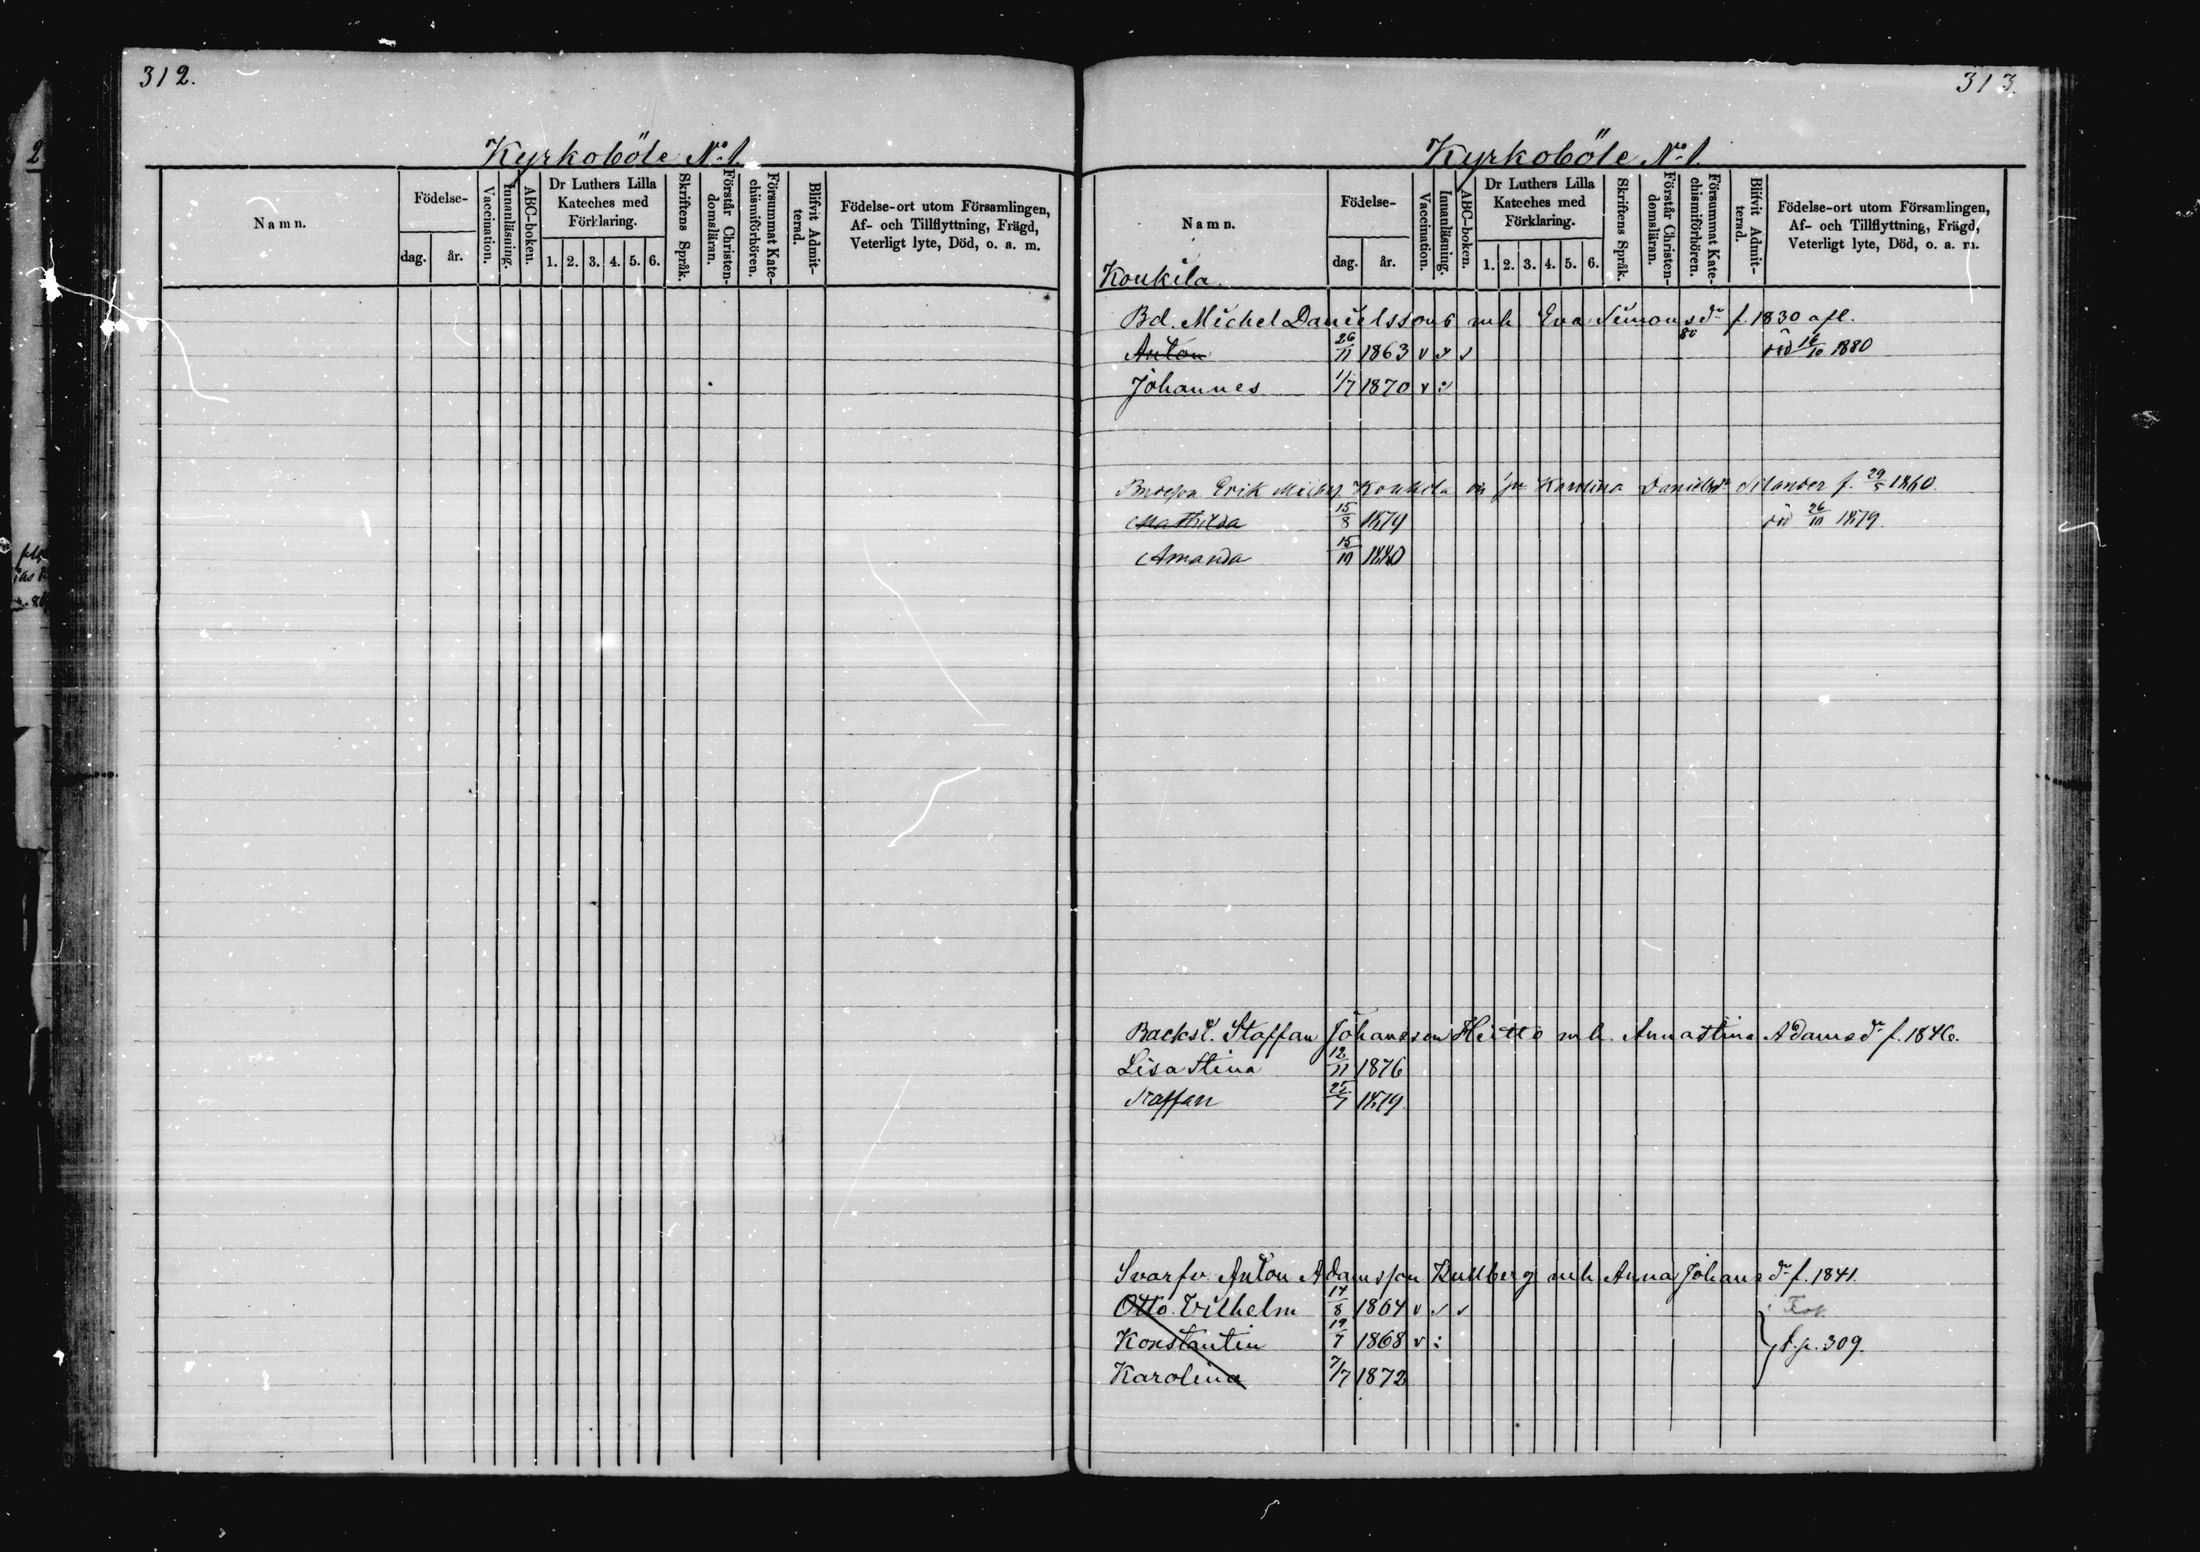 312.
Kyrkoböle No 1.
Namn.
Födelse-
dag.
år.
Vaccination.
Innanläsning.
ABC-boken.
Dr Luthers Lilla
Kateches med
Förklaring.
1. 2. 3. 4. 5. 6.
Skriftens Språk.
Förstår Christen-
domsläran.
Försummat Kate-
chismiförhören.
Blifvit Admit-
terad.
Födelse-ort utom Församlingen,
Af- och Tillflyttning, Frägd,
Veterligt lyte, Död, o. a. m.
313.
Kyrkoböle No 1.
Namn.
Födelse-
dag.
år.
Vaccination.
Innanläsning.
ABC-boken.
Dr Luthers Lilla
Kateches med
Förklaring.
1. 2. 3. 4. 5. 6.
Skriftens Språk.
Förstår Christen-
domsläran.
Försummat Kate-
chismiförhören.
Blifvit Admit-
terad.
Födelse-ort utom Församlingen,
Af- och Tillflyttning, Frägd,
Veterligt lyte, Död, o. a. m.
Konkila.
Bd. Michel Danielssons mh Eva Simonsdr f. 1830 afl.
Anton 26/11 1863 v v v 80 död 16/10 1880
Johannes 1/7 1870 v :/
Erik Konkila Karolina Danielsdr Silander f. 29/5 1860.
Mathilda 15/8 1879 död 26/10 1879.
Amanda 15/10 1880
Backst. Staffan Johansson Heitto mh. Annastina Adamsdr f. 1846.
Lisa Stina 12/11 1876
Staffan 25/7 1879.
Svarfv. Anton Adamsson Kullberg mh Anna Johansdr f. 1841.
Otto Vilhelm 14/8 1864 v v v
Konstantin 19/7 1868 v : } f. p. 309.
Karolina 7/7 1872